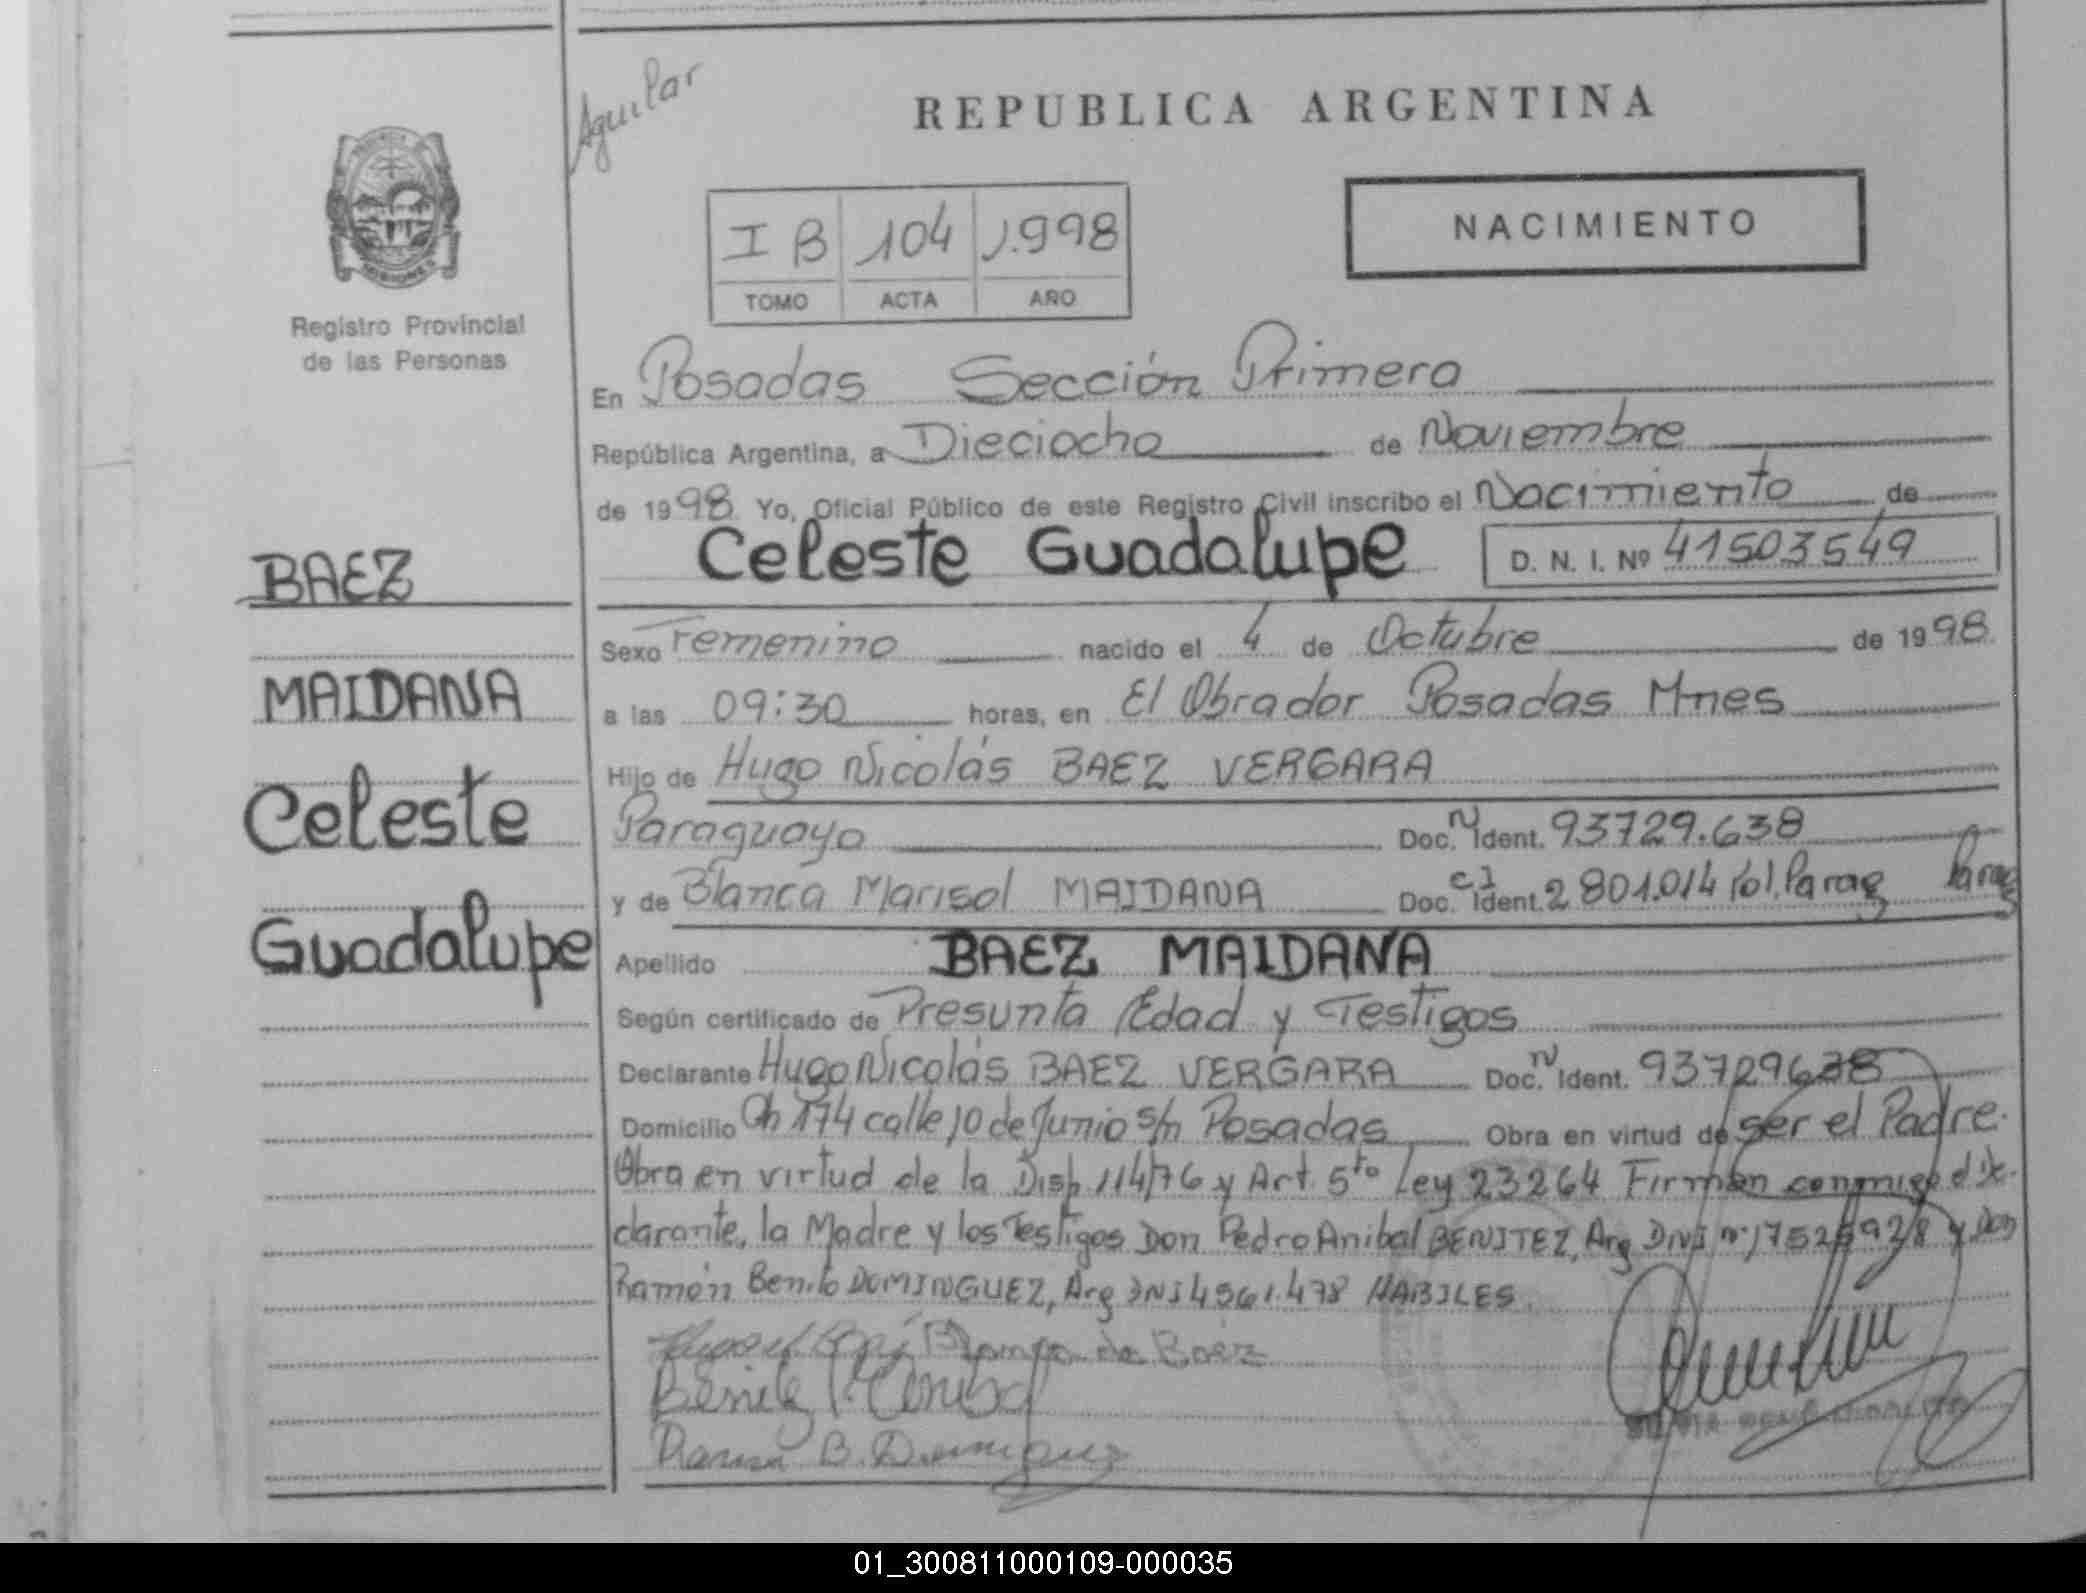 Aguilar
REPUBLICA ARGENTINA
NACIMIENTO
I B 104 1.998
TOMO ACTA AÑO
MISIONES
Registro Provincial
de las Personas
En Posadas Sección Primera
República Argentina, a Dieciocho de Noviembre
de 1998 Yo, Oficial Público de este Registro Civil inscribo el Nacimiento de
Celeste Guadalupe D. N. I. Nº 41503549
BAEZ
MAIDANA
Celeste
Guadalupe
Sexo Femenino nacido el 4 de Octubre de 1998.
a las 09:30 horas, en El Obrador Posadas Mnes
Hijo de Hugo Nicolás BAEZ VERGARA
Paraguayo Doc. N Ident. 93729.638
y de Blanca Marisol MAIDANA Doc. C I Ident. 2801.014 Pol. Parag Parag
Apellido BAEZ MAIDANA
Según certificado de Presunta Edad y Testigos
Declarante Hugo Nicolás BAEZ VERGARA Doc. N Ident. 93729638
Domicilio Ch 174 calle 10 de Junio s/n Posadas Obra en virtud de ser el Padre.
Obra en virtud de la Disp. 114/76 y Art. 5to Ley 23264 Firman conmigo el De-
clarante, la Madre y los Testigos Don Pedro Anibal BENITEZ, Arg DNI nº y Don
Ramón Benito DOMINGUEZ, Arg DNI 4561.478 HABILES.
Blanca de Baez
Benitez
Ramon B. Dominguez
01_300811000109-000035